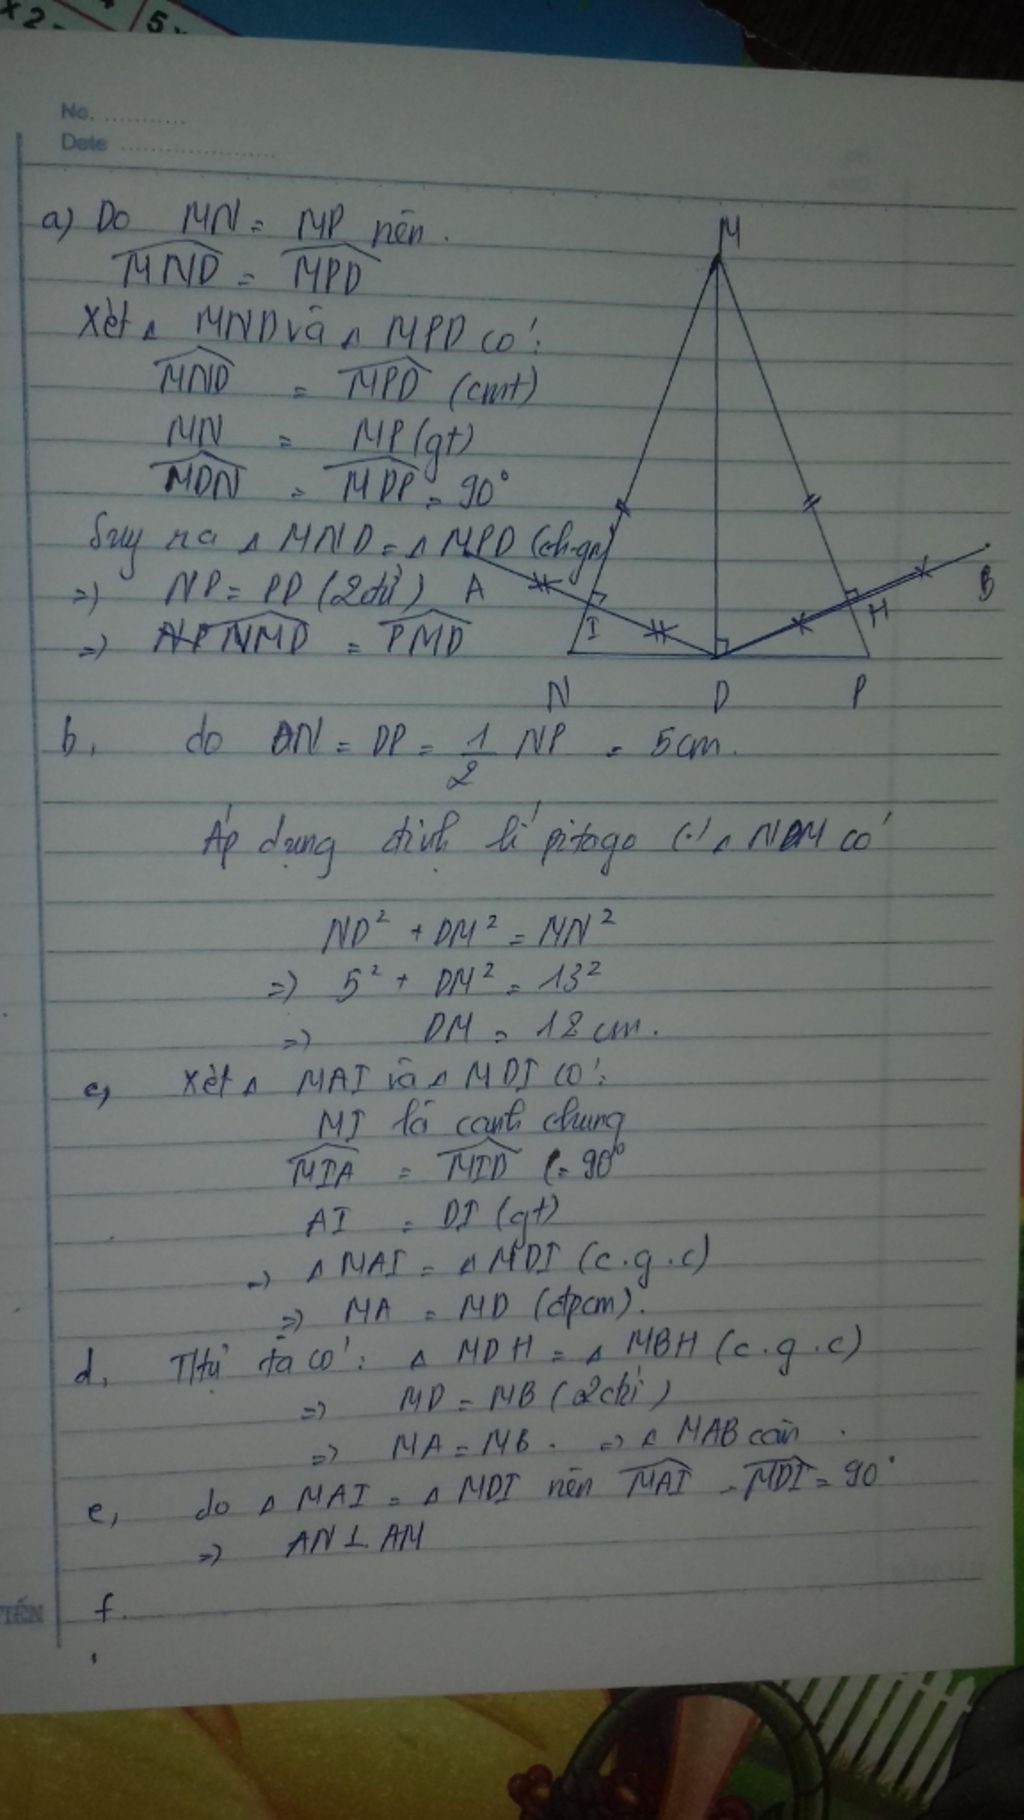 x2
5
No.
Date
a) Do MN = MP nên.
MND = MPD
Xét Δ MND và Δ MPD có:
MND = MPD (cmt)
MN = MP (gt)
MDN = MDP = 90°
Suy ra Δ MND = Δ MPD (ch-gn)
=) NP = PD (2 )
=) NMD = PMD
M
A
I
H
B
N D P
b, do DN = DP = 1/2 NP = 5cm.
Áp dụng định lí pitago Δ NDM có
ND² + DM² = MN²
=) 5² + DM² = 13²
=) DM = 12 cm.
c, Xét Δ MAI và Δ MDI có:
MI là cạnh chung
MIA = MID (= 90°
AI = DI (gt)
=) Δ MAI = Δ MDI (c.g.c)
=) MA = MD (đpcm).
d, ta có: Δ MDH = Δ MBH (c.g.c)
=) MD = MB (2 )
=) MA = MB. =) Δ MAB cân.
e, do Δ MAI = Δ MDI nên MAI = MDI = 90°
=) AN ⊥ AM
f.